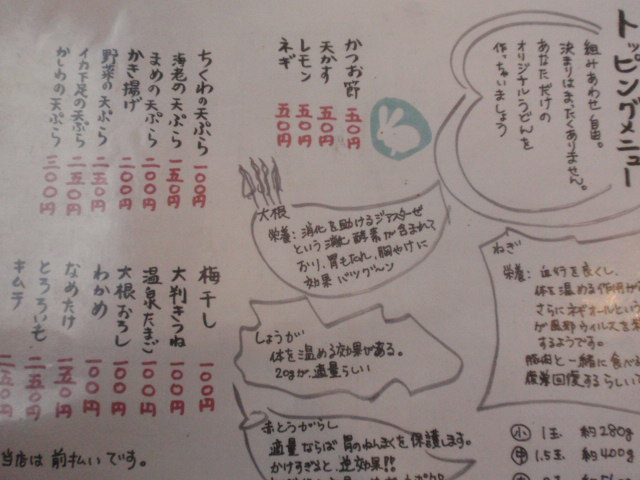 トッピングメニュー
組みあわせ自由。
決まりはまったくありません。
あなただけの
オリジナルうどんを
作っちゃいましょう
かつお節 五〇円
天かす 五〇円
レモン 五〇円
ネギ 五〇円
ちくわの天ぷら 一〇〇円
海老の天ぷら 一五〇円
まめの天ぷら 一〇〇円
かき揚げ 二〇〇円
野菜の天ぷら 一五〇円
イカ下足の天ぷら 二五〇円
かしわの天ぷら 二〇〇円
梅干し 一〇〇円
大判きつね 一〇〇円
温泉たまご 一〇〇円
大根おろし 一〇〇円
わかめ 一〇〇円
なめたけ 一五〇円
とろろいも 二五〇円
キムチ 一五〇円
大根
栄養:消化を助けるジアスターゼ
という消化酵素が含まれて
おり、胃もたれ、胸やけに
効果バツグン
しょうが
体を温める効果がある。
20gが適量らしい
ねぎ
栄養:血行を良くし、
体を温める作用が
さらにネギオールという
が風邪ウィルスを
するようです。
豚肉と一緒に食べる
疲労回復するらしい
とうがらし
適量ならば胃のねんまくを保護します。
かけすぎると逆効果!!
小 1玉 約280g
中 1.5玉 約400g
当店は前払いです。